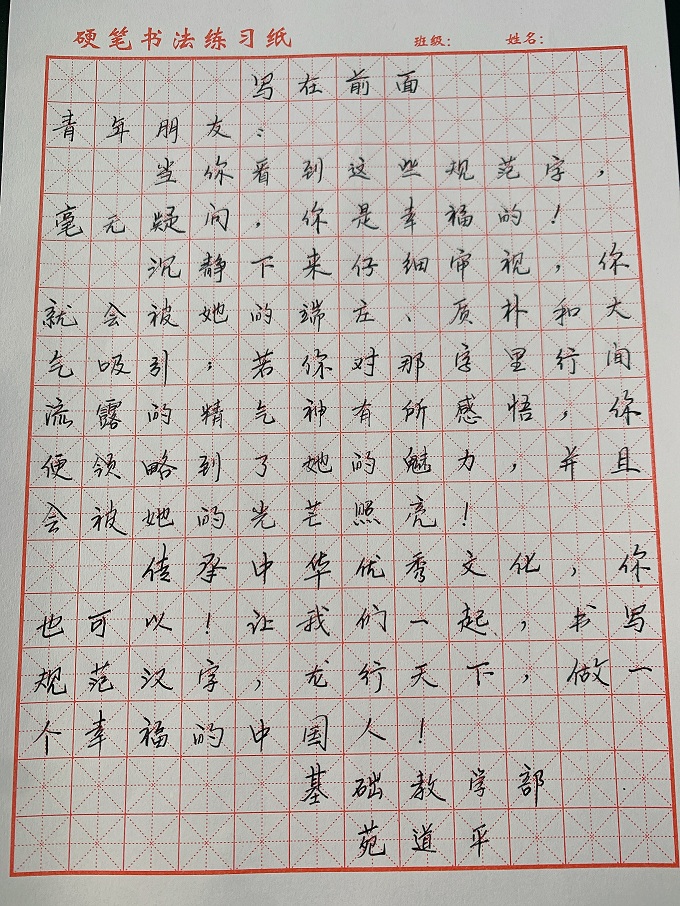 硬笔书法练习纸 班级： 姓名：
写在前面
青年朋友：
当你看到这些规范字，
毫无疑问，你是幸福的！
沉静下来仔细审视，你
就会被她的端庄、质朴和大
气吸引；若你对那字里行间
流露的精气神有所感悟，你
便领略到了她的魅力，并且
会被她的光芒照亮！
传承中华优秀文化，你
也可以！让我们一起，书写
规范汉字，龙行天下，做一
个幸福的中国人！
基础教学部
苑道平